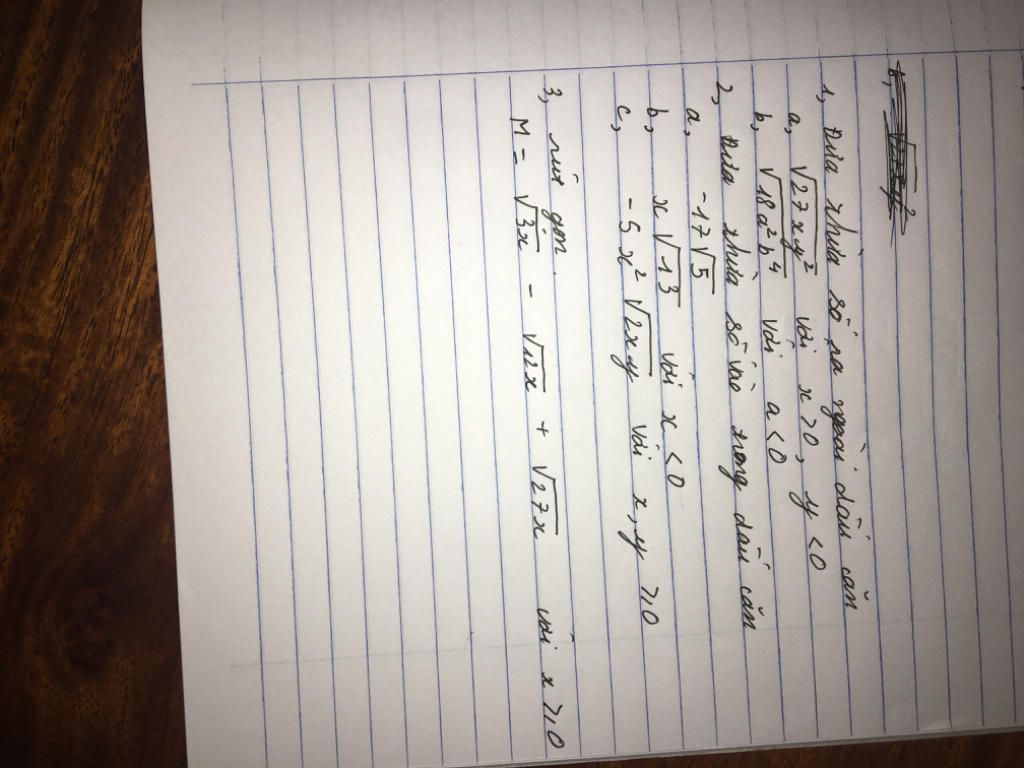 1, Đưa thừa số ra ngoài dấu căn
a, √27xy² với x>0, y<0
b, √18a²b⁴ với a<0
2, Đưa thừa số vào trong dấu căn
a, -17√5
b, x√13 với x<0
c, -5x²√2xy với x,y ⩾0
3, rút gọn.
M= √3x - √12x + √27x với x⩾0